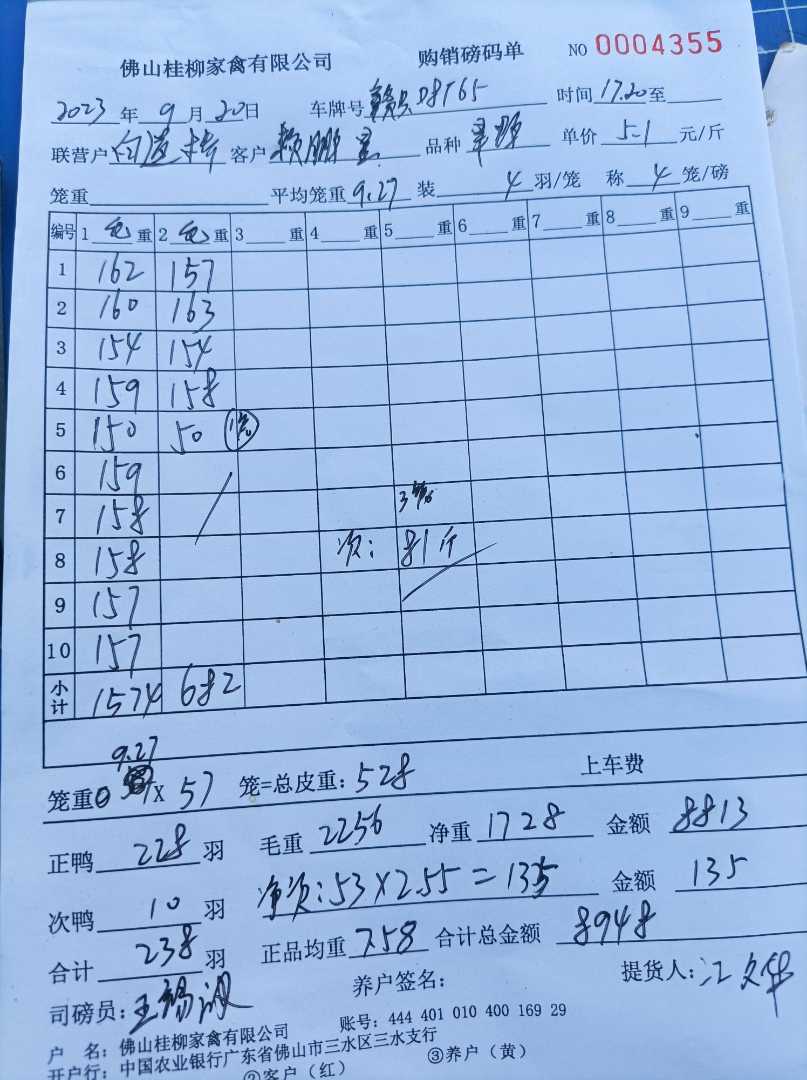 佛山桂柳家禽有限公司 购销磅码单 NO 0004355
2023 年 9 月 20 日 车牌号 D8T65 时间 17.20 至
联营户 客户 赖鹏 品种 单价 5.1 元/斤
笼重 平均笼重 9.27 装 4 羽/笼 称 4 笼/磅
编号 1 毛 重 2 毛 重 3 重 4 重 5 重 6 重 7 重 8 重 9 重
1 162 157
2 160 163
3 154 154
4 159 158
5 150 50
6 159
7 158 3
8 158 次: 81斤
9 157
10 157
小计 1574 682
9.27
笼重 X 57 笼=总皮重: 528 上车费
正鸭 228 羽 毛重 2256 净重 1728 金额 8813
次鸭 10 羽 净次: 53 X 2.55 = 135 金额 135
合计 238 羽 正品均重 7.58 合计总金额 8948
司磅员: 王锡 养户签名: 提货人: 江文华
户 名: 佛山桂柳家禽有限公司 账号: 444 401 010 400 169 29
开户行: 中国农业银行广东省佛山市三水区三水支行
②客户(红) ③养户(黄)